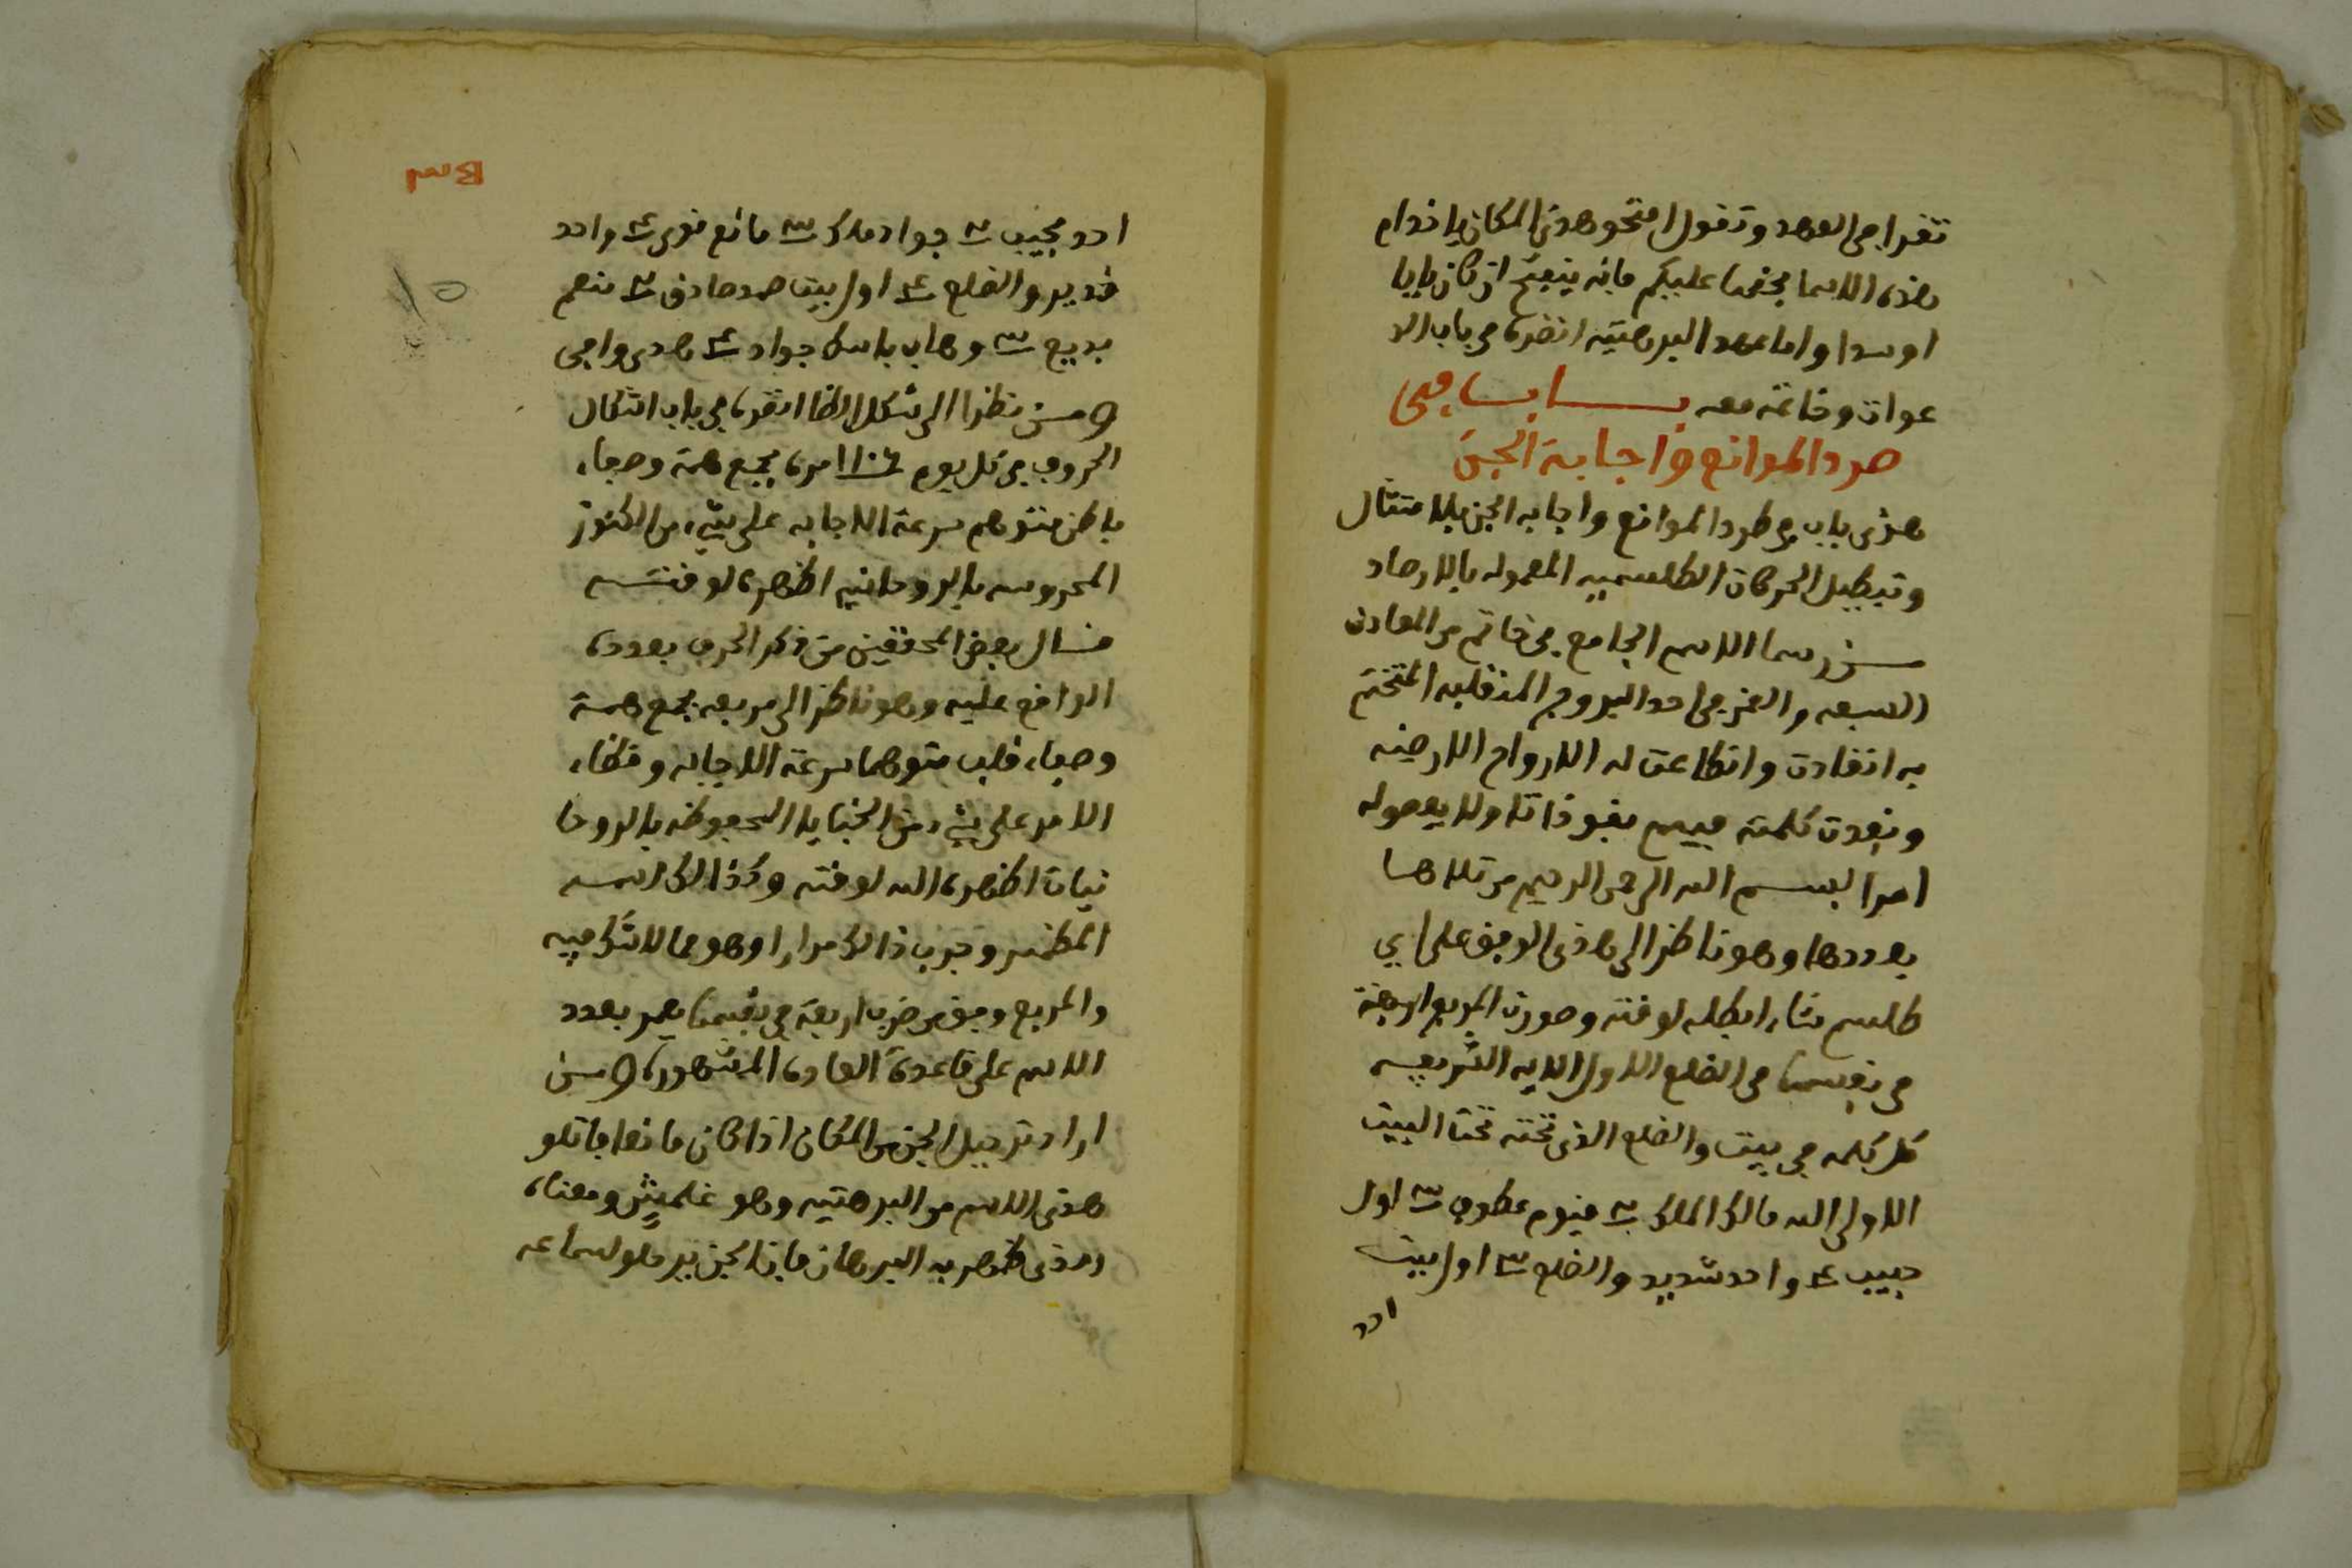 تقرا في العهد وتقول افتحو هدى المكان يا خدام
هذه الاسما بحقها عليكم فانه ينفتح ان كان بابا
او سدا واما عهد البرهتيه انضره في باب الد
عوات وخاتمه معه باب في
صرد الموانع واجابة الجن
هذى باب في طرد الموانع واجابه الجن بالامتثال
وتبطيل الحركات الطلسميه المعموله بالارصاد
من رسما الاسم الجامع في خاتم من المعادن
السبعه والقمر في احد البروج المنقلبه المتختم
به انقادت وانطاعت له الارواح الارضيه
ونفدت كلمته فيهم نفوذا تا ولا يعصوله
امرا بسم الله الرحمن الرحيم من تلاها
بعددها وهو ناظر الى هذى الوفق على اي
طلسم شاء ابطله لوقته وصورت المربع اربعة
في نفسها في الضلع الاول الايه الشريفه
كل كلمه في بيت والضلع الذى تحته تحت البيت
الاول الله مالك الملك ٢ قيوم عطوف ٣ اول
حبيب ٤ واحد شديد والضلع ٣ اول بيت
احد
احد مجيب ٢ جواد ملك ٣ مانع قوى ٤ واحد
قدير والضلع ٤ اول بيت صمد صادق ٢ منعم
بديع ٣ وهاب باسط جواد ٤ هدى وافي
ومن نظر الى شكل الظا انضره في باب اشكال
الحروف في كل يوم ١١٠٦ مره بجمع همة وصفاء
باطن متوهم سرعة الاجابه على شيء من الكنوز
المحروسه بالروحانيه اظهره لوقتسه
فسال بعض المحققين من ذكر الحرف بعدده
الواقع عليه وهو ناظر الى مربعه بجمع همة
وصفاء قلب متوهما سرعة الاجابه وقضاء
الامر على شيء من الخبايا المحفوظه بالروحا
نيات اظهره الله لوقته وكذالك اسمه
المظهر وجرب ذالك مرارا وهو مما لا شك فيه
والمربع وفق من ضرب اربعة في نفسها يعمر بعدد
الاسم على قاعدة العاده المشهوره ومن
اراد ترحيل الجن من المكان اذا كان مانعا فاتلو
هدى الاسم من البرهتيه وهو غلميش ومعناه
امدنى ظهر به البرهان فان الجن يرحلو لساعه